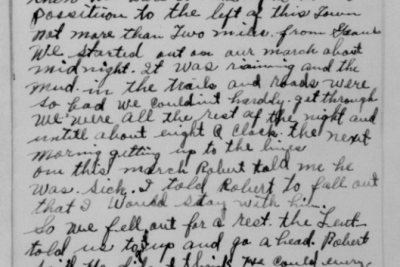 possition to the left of this Town
not more than Two miles. from
We started out on our march about
midnight. It was raining and the
mud. in the trails and roads were
so bad we couldint hardly. get through
we were all the rest of the night and
untill about eight O clock. the next
morning getting up to the lines
on this march Robert told me he
was. sick. I told Robert to fall out
that I would stay with him.
So we fell out for a rest. the Leut
told us to up and go a head. Robert
I think we could every